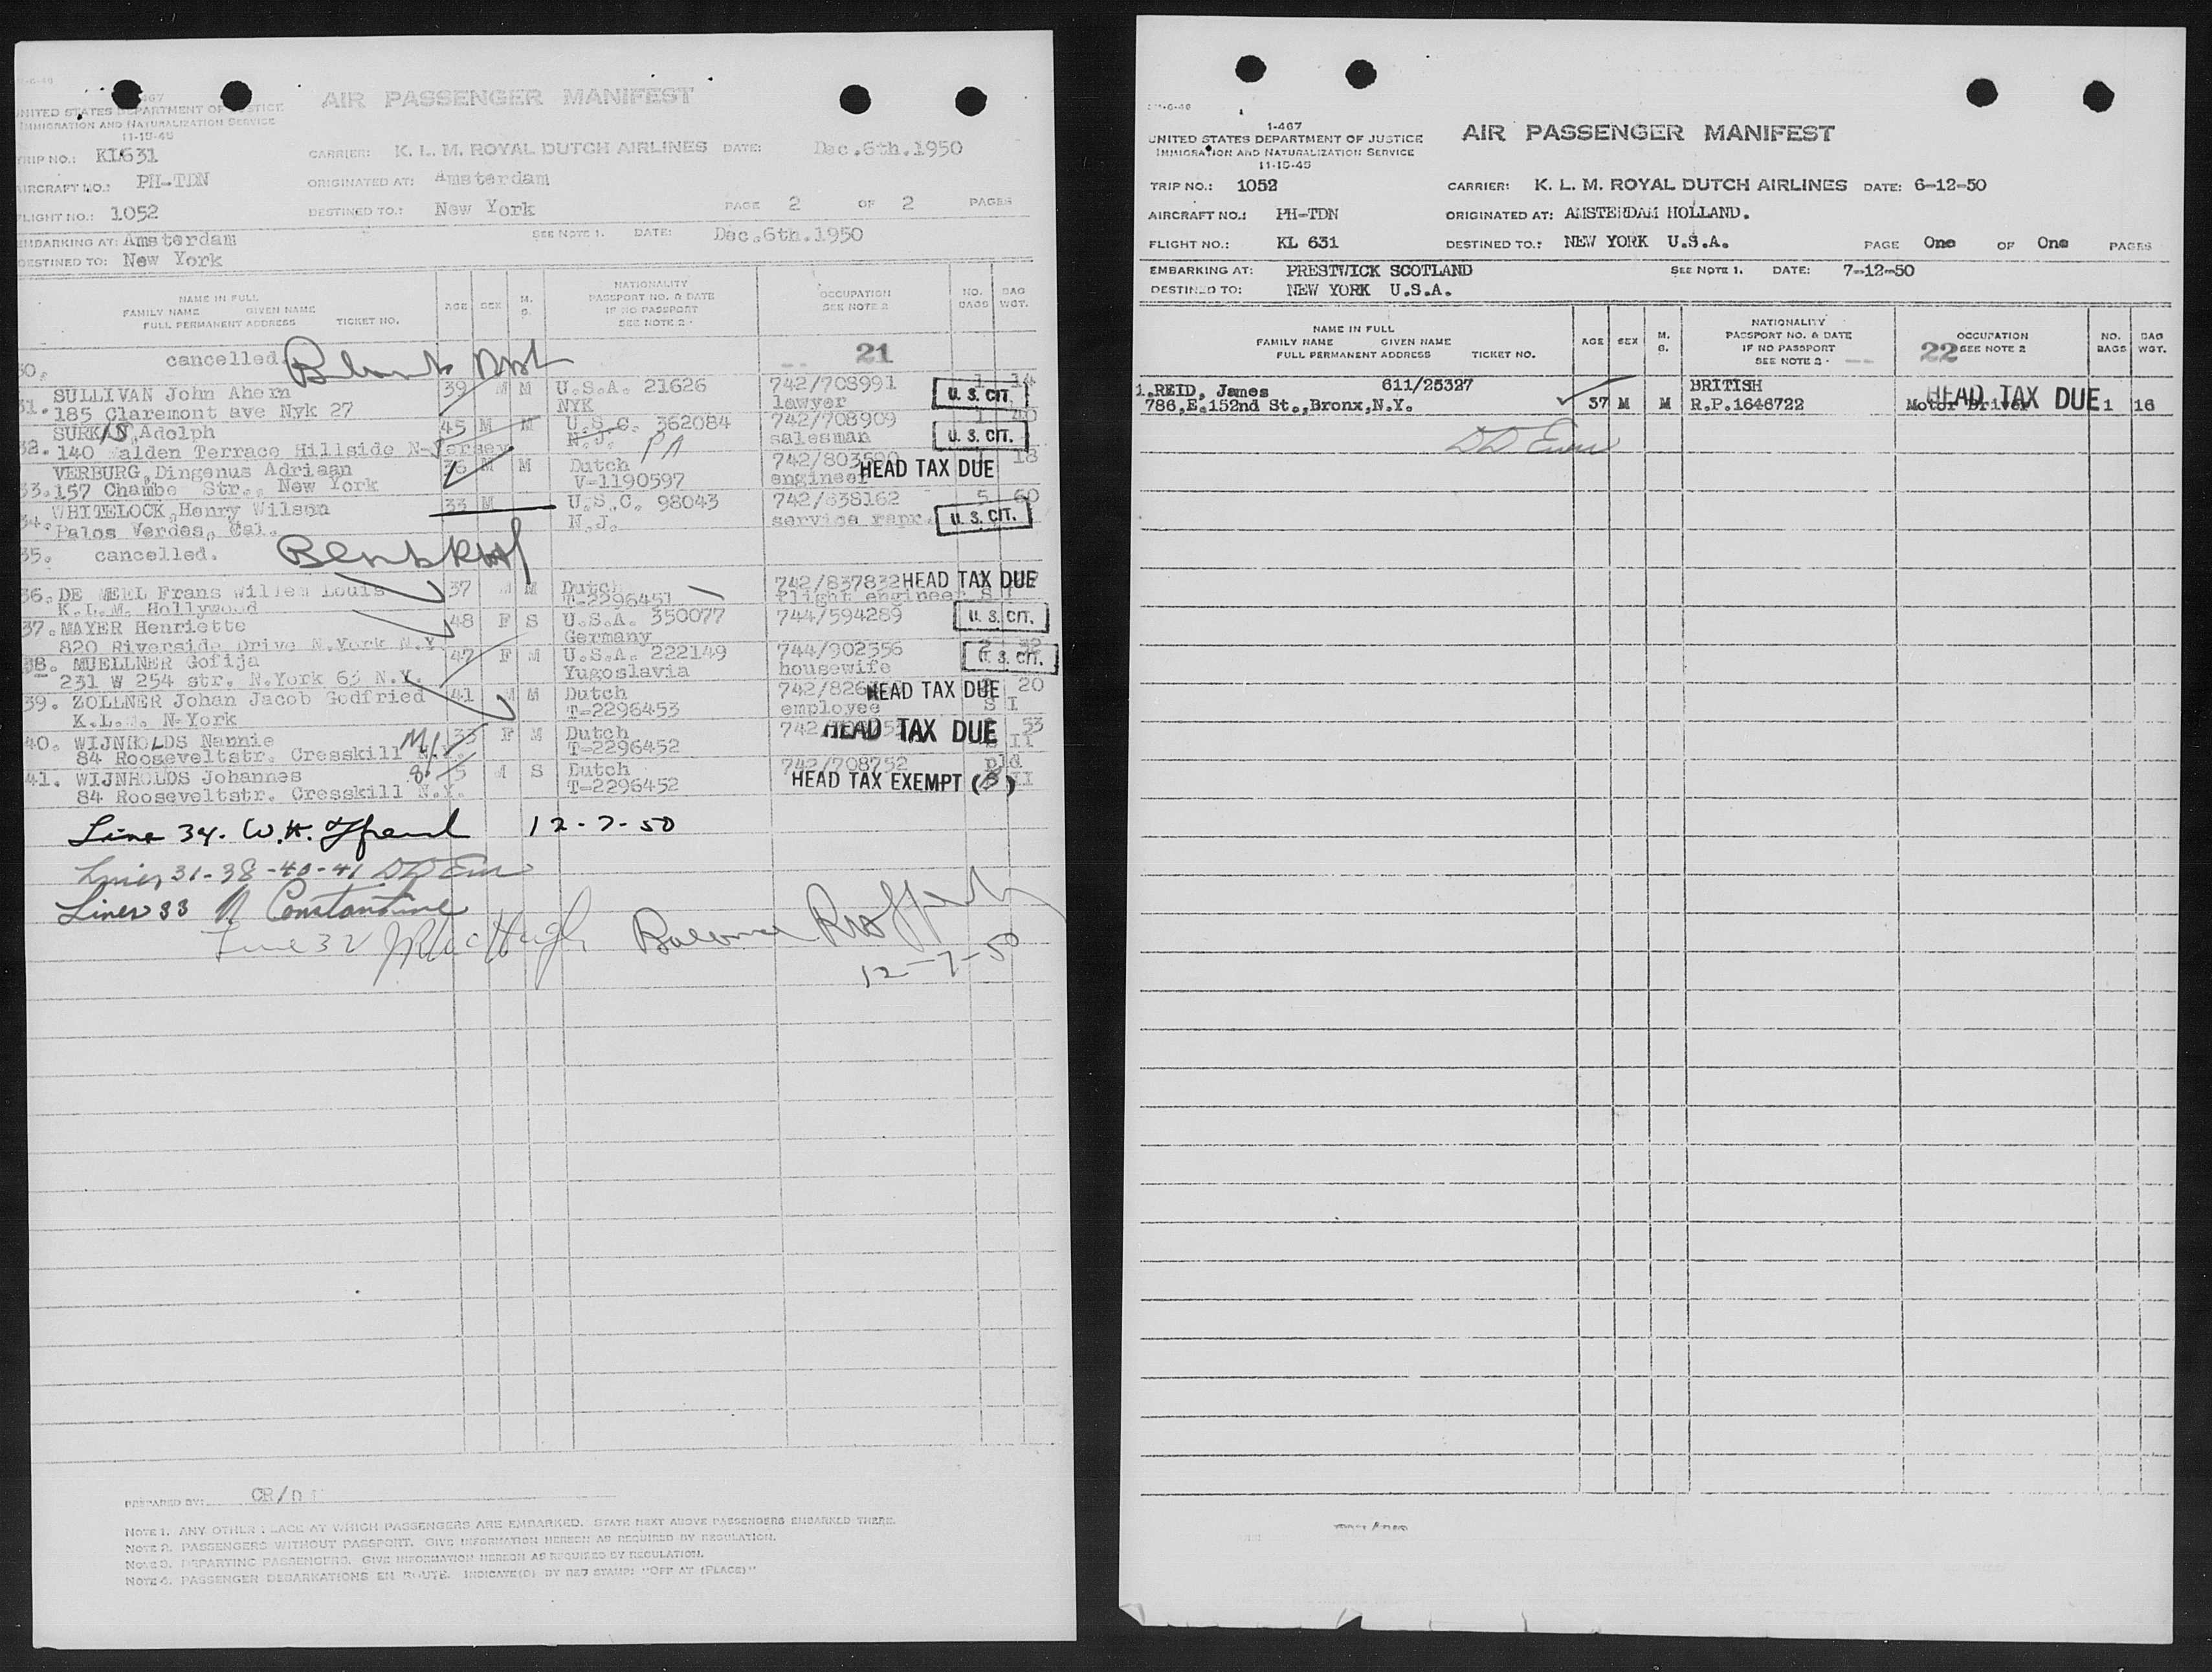 AIR PASSENGER MANIFEST
UNITED STATES DEPARTMENT OF JUSTICE
IMMIGRATION AND NATURALIZATION SERVICE
11-15-45
TRIP NO.: KL631 CARRIER: K. L. M. ROYAL DUTCH AIRLINES DATE: Dec.6th.1950
AIRCRAFT NO.: PH-TDN ORIGINATED AT: Amsterdam
FLIGHT NO.: 1052 DESTINED TO.: New York PAGE 2 OF 2 PAGES
EMBARKING AT: Amsterdam SEE NOTE 1. DATE: Dec.6th.1950
DESTINED TO: New York
NAME IN FULL
FAMILY NAME GIVEN NAME
FULL PERMANENT ADDRESS TICKET NO.
AGE SEX M. S.
NATIONALITY
PASSPORT NO. & DATE
IF NO PASSPORT
SEE NOTE 2 -
OCCUPATION
SEE NOTE 2
NO. BAGS
BAG WGT.
30. cancelled. 21
31. SULLIVAN John Ahern 39 M M U.S.A. 21626 742/708991 1 14
185 Claremont ave Nyk 27 NYK lawyer U. S. CIT.
32. Adolph 45 M M U.S.C. 362084 742/708909 1 40
140 Walden Terrace Hillside N-Jersey N.J. PA salesman U. S. CIT.
33. VERBURG, Dingenus Adriaan 36 M M Dutch HEAD TAX DUE 18
157 Chambe Str., New York V-1190597 engineer
34. WHITELOCK, Henry Wilson 33 M U.S.C. 98043 742/638162 5 60
Palos Verdes, Cal. N.J. service repr. U. S. CIT.
35. cancelled.
36. DE MEEL Frans Willem Louis 37 M M Dutch 742/837832 HEAD TAX DUE
K.L.M. Hollywood T-2296451 flight engineer S I
37. MAYER Henriette 48 F S U.S.A. 350077 744/594289 U. S. CIT.
820 Riverside Drive N.York N.Y. Germany
38. MUELLNER Gofija 47 F M U.S.A. 222149 744/902356 2 32
231 W 254 str. N.York 63 N.Y. Yugoslavia housewife U. S. CIT.
39. ZOLLNER Johan Jacob Godfried 41 M M Dutch HEAD TAX DUE 20
K.L.M. N-York T-2296453 employee S I
40. WIJNHOLDS Nannie 33 F M Dutch HEAD TAX DUE 53
84 Rooseveltstr. Cresskill T-2296452 II
41. WIJNHOLDS Johannes 5 M S Dutch 742/708752 pld
84 Rooseveltstr. Cresskill N.Y. T-2296452 HEAD TAX EXEMPT ( ) II
Line 34. W.H. 12-7-50
Lines 31-38-40-41
Lines 33 Constantine
Line 32
12-7-50
PREPARED BY:
NOTE 1. ANY OTHER PLACE AT WHICH PASSENGERS ARE EMBARKED. STATE NEXT ABOVE PASSENGERS EMBARKED THERE.
NOTE 2. PASSENGERS WITHOUT PASSPORT. GIVE INFORMATION HEREON AS REQUIRED BY REGULATION.
NOTE 3. DEPARTING PASSENGERS. GIVE INFORMATION HEREON AS REQUIRED BY REGULATION.
NOTE 4. PASSENGER DEBARKATIONS EN ROUTE. INDICATE(D) BY RED STAMP: "OFF AT (PLACE)"
1-467
UNITED STATES DEPARTMENT OF JUSTICE AIR PASSENGER MANIFEST
IMMIGRATION AND NATURALIZATION SERVICE
11-15-45
TRIP NO.: 1052 CARRIER: K. L. M. ROYAL DUTCH AIRLINES DATE: 6-12-50
AIRCRAFT NO.: PH-TDN ORIGINATED AT: AMSTERDAM HOLLAND.
FLIGHT NO.: KL 631 DESTINED TO.: NEW YORK U.S.A. PAGE One OF One PAGES
EMBARKING AT: PRESTWICK SCOTLAND SEE NOTE 1. DATE: 7-12-50
DESTINED TO: NEW YORK U.S.A.
NAME IN FULL
FAMILY NAME GIVEN NAME
FULL PERMANENT ADDRESS TICKET NO.
AGE SEX M. S.
NATIONALITY
PASSPORT NO. & DATE
IF NO PASSPORT
SEE NOTE 2 -
OCCUPATION
22 SEE NOTE 2
NO. BAGS
BAG WGT.
1. REID, James 611/25327 BRITISH HEAD TAX DUE
786,E.152nd St.,Bronx,N.Y. 37 M M R.P.1646722 Motor Driver 1 16